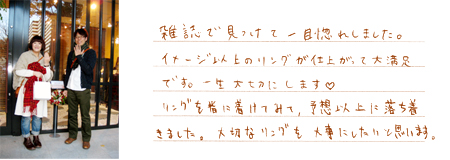 雑誌で見つけて一目惚れしました。
イメージ以上のリングが仕上がって大満足
です。一生大切にします♡
リングを指に着けてみて、予想以上に落ち着
きました。大切なリングを大事にしたいと思います。